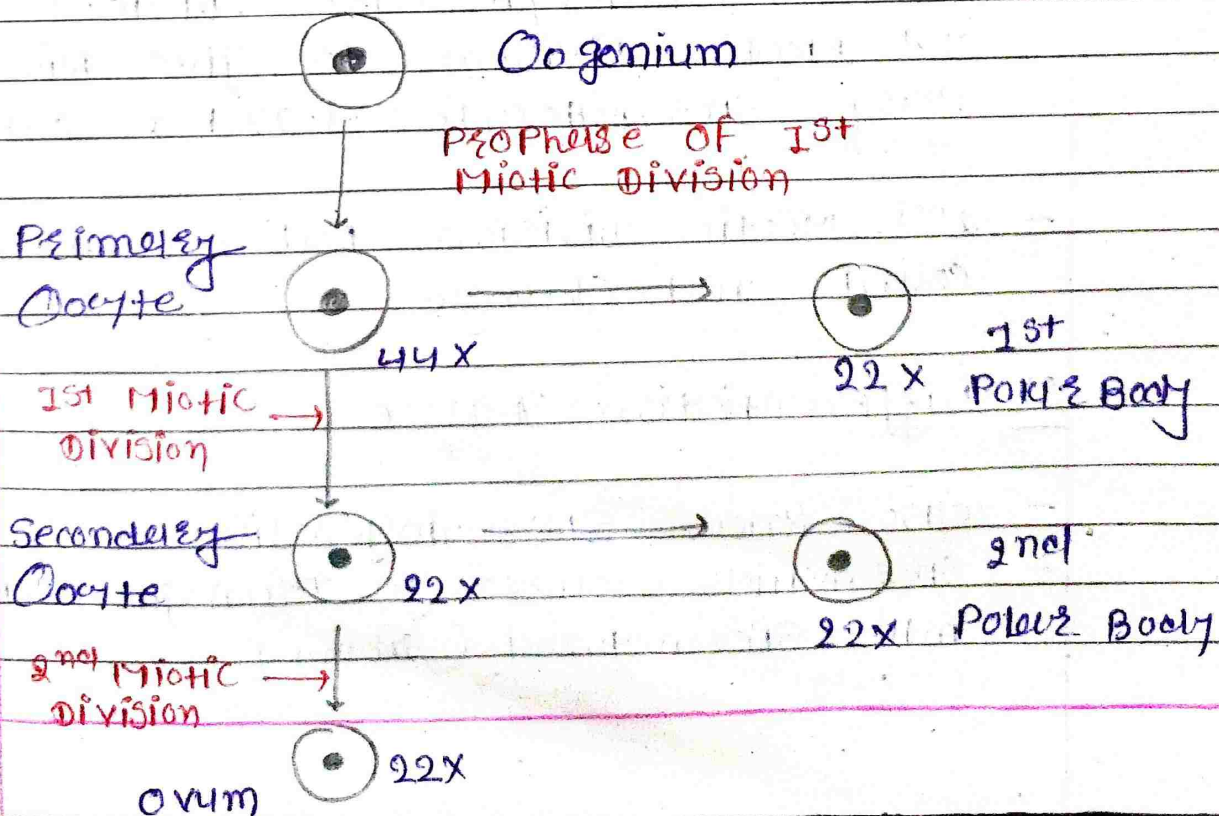 Oogonium
Prophase of 1st
Miotic Division
Primary
Oocyte
44X
22X
1st
Polar Body
1st Miotic
Division
Secondary
Oocyte
22X
22X
2nd
Polar Body
2nd Miotic
Division
22X
Ovum